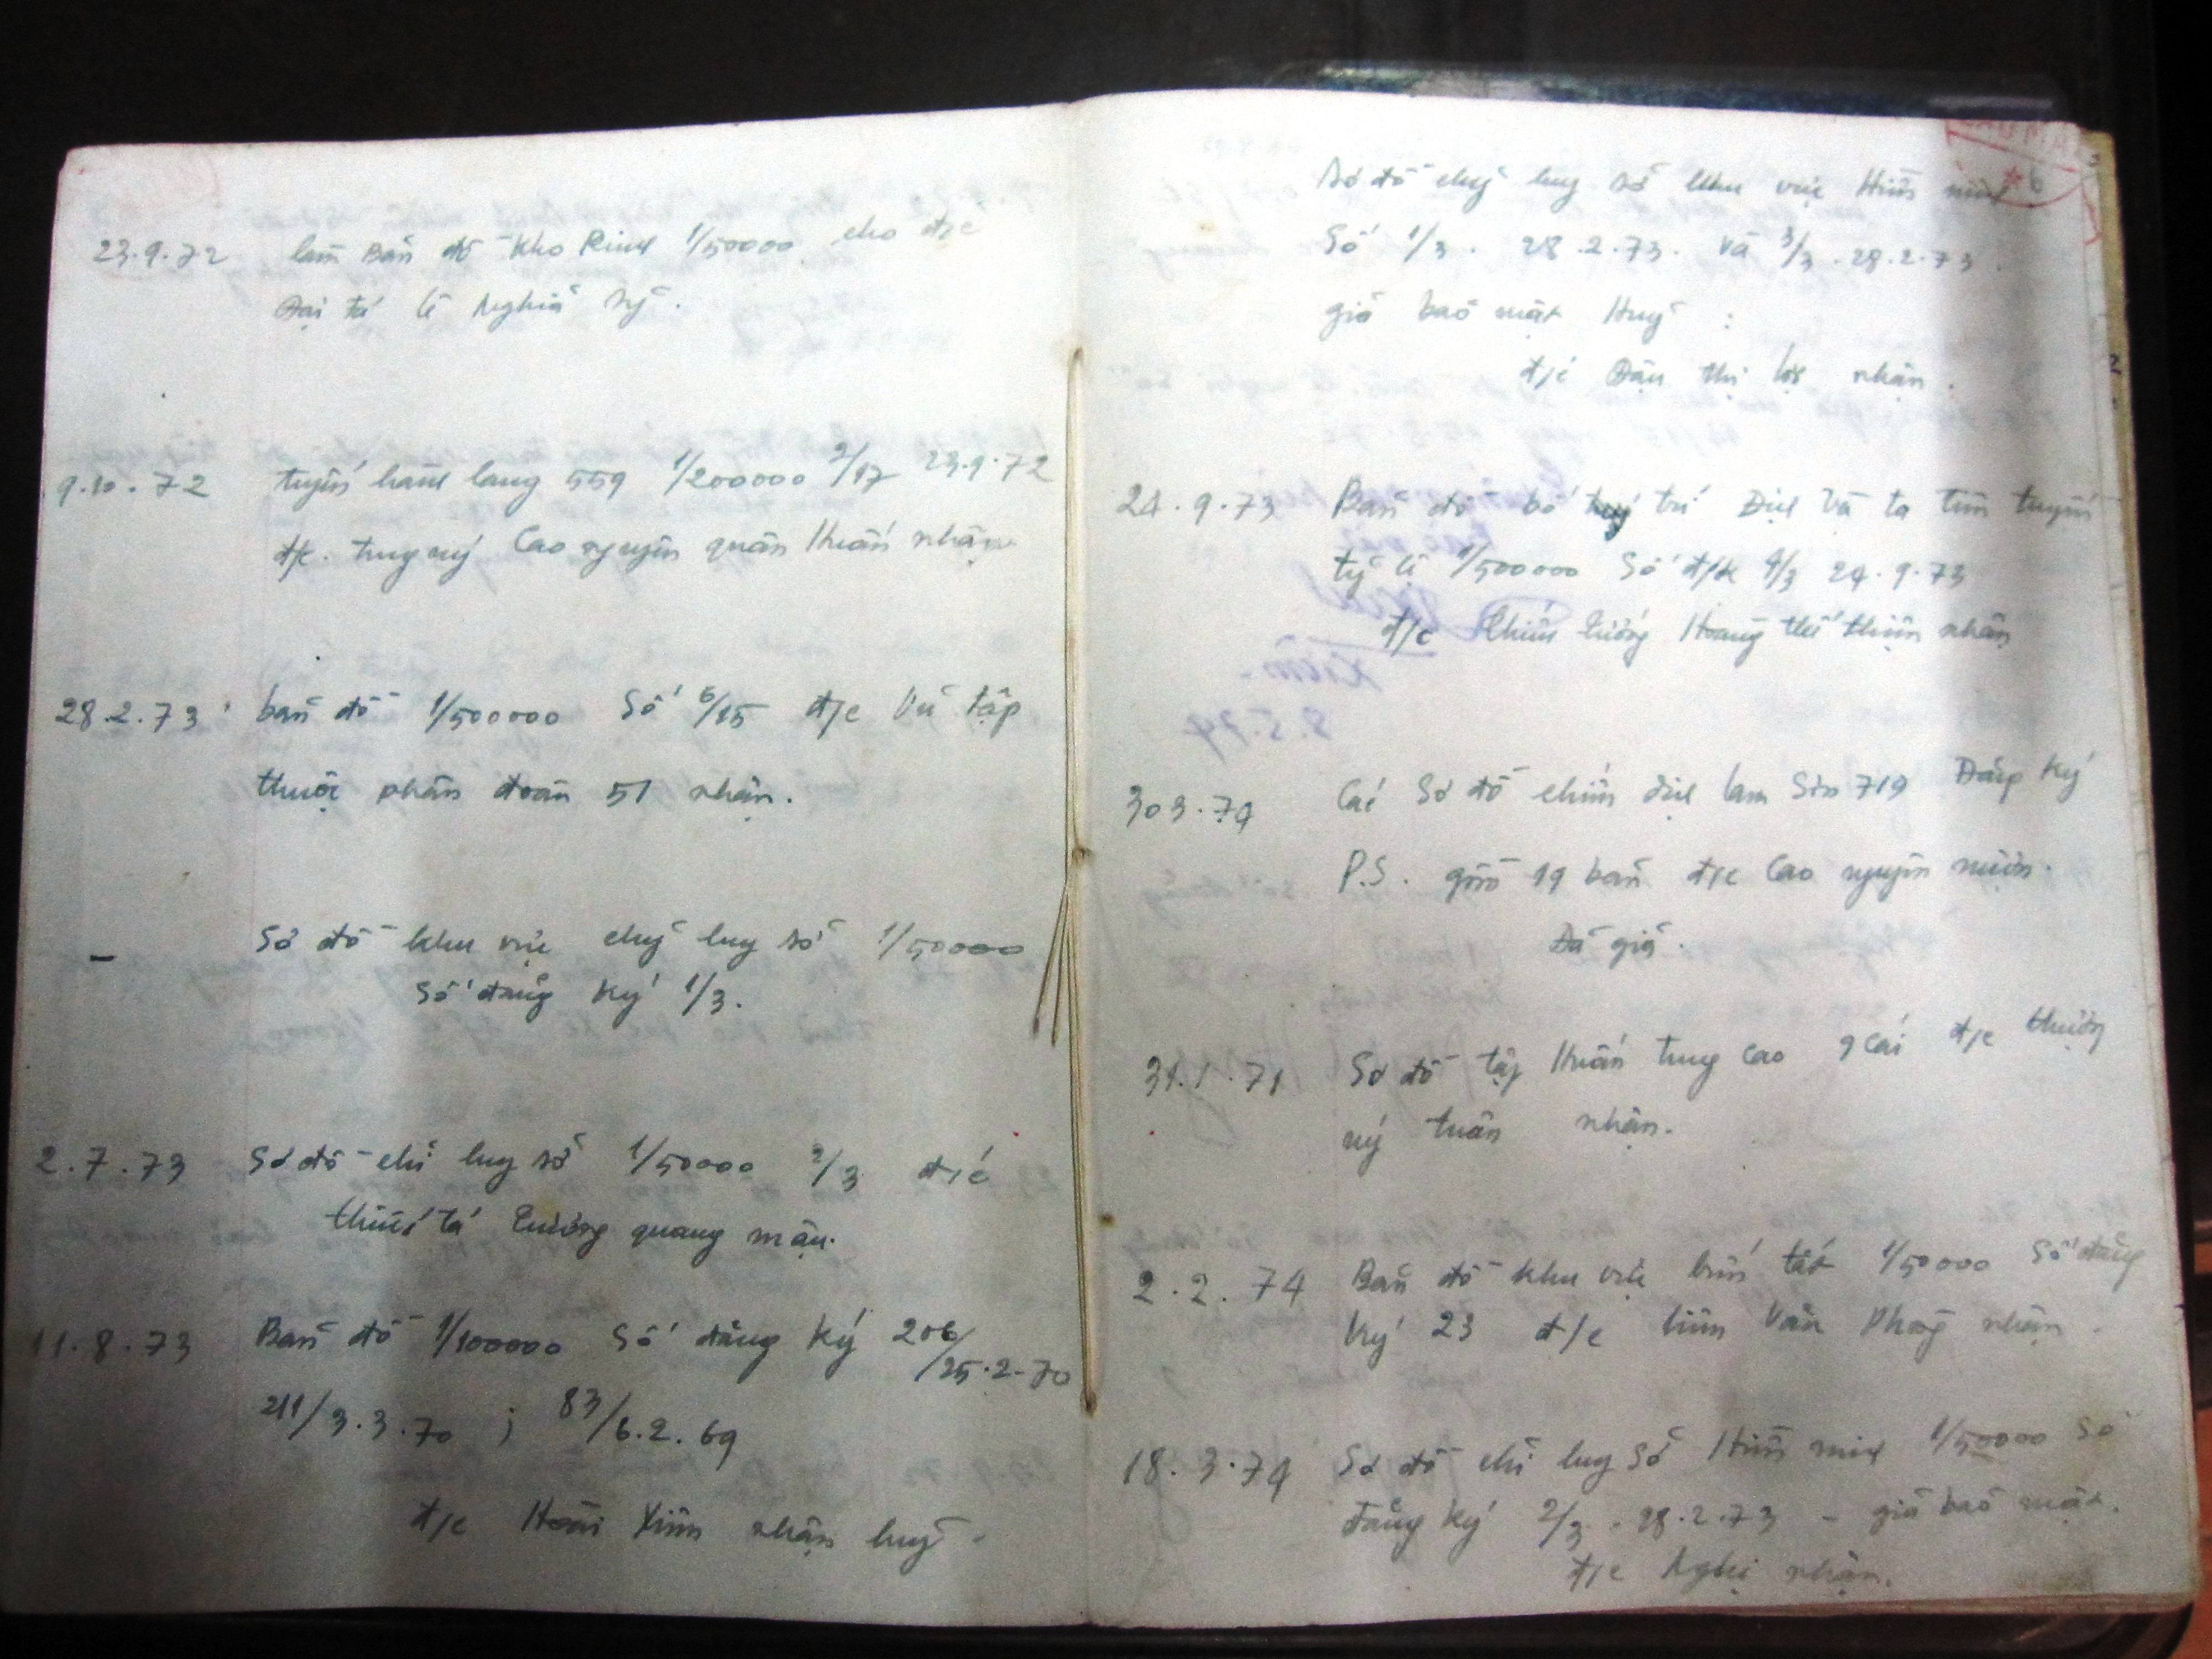 23.9.72 làm Bản đồ Kho Rinh 1/50000 cho đ/c
Đại tá Lê Nghĩa Sỹ.
9.10.72 tuyến hành lang 559 1/200000 2/17 23.9.72
đ/c. trung uý Cao nguyên quân Huấn nhận
28.2.73 bản đồ 1/500000 Số 6/15 đ/c Vũ Tập
thuộc phân đoàn 51 nhận.
- Sơ đồ khu vực chỹ huy sở 1/50000
Số đăng ký 1/3.
2.7.73 Sơ đồ chỉ huy sở 1/50000 2/3 đ/c
thiếu tá Trường quang mậu.
11.8.73 Bản đồ 1/100000 Số đăng ký 206/25.2-70
211/3.3.70 ; 83/6.2.69
đ/c Hoài Xiêm nhận huỷ.
Sơ đồ chỹ huy sở khu vực Hiền
Số 1/3. 28.2.73. Và 3/3. 28.2.73.
giả bảo mật Huỷ :
đ/c Đậu thi nhận.
24.9.73 Bản đồ bố trí Địch Và ta Tiền tuyến
tỷ lệ 1/500000 Số đ/k 4/3 24.9.73
đ/c Thiếu tướng Hoàng thế thiện nhận
8.5.74
303.74 Cái Sơ đồ chiến dịch lam Sơn 719 Đáp Ký
P.S. gồm 19 bản đ/c Cao nguyên mượn.
Đã giả.
31.1.71 Sơ đồ tập Huấn trung cao 9 cái đ/c thượng
uý tuân nhận.
2.2.74 Bản đồ khu vực bến tắt 1/50000 Số đăng
ký 23 đ/c Văn nhận.
18.3.74 Sơ đồ chỉ huy Sở Hiền 1/50000 Số
đăng ký 2/3. 28.2.73 - giả bảo mật.
đ/c Nghị nhận.